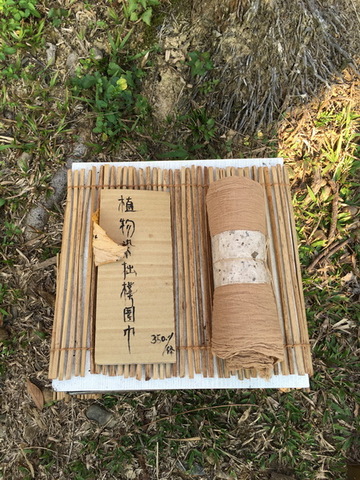 植物染拙樸圍巾
350.-/條